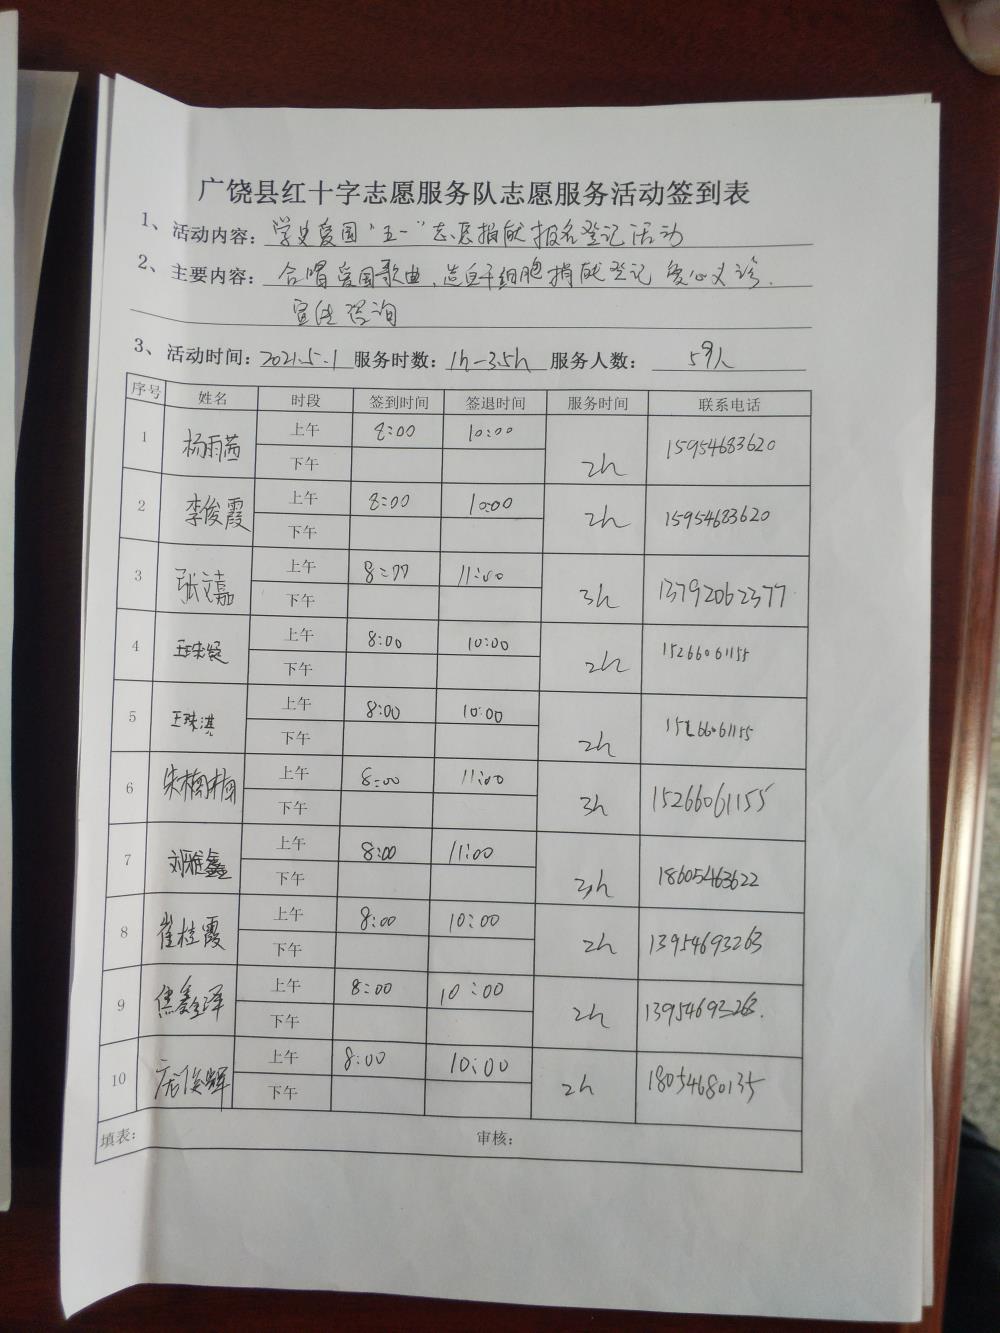 广饶县红十字志愿服务队志愿服务活动签到表
1、活动内容：学史爱国“五一”志愿捐献报名登记活动
2、主要内容：合唱爱国歌曲、造血干细胞捐献登记 爱心义诊.
宣传咨询
3、活动时间：2021.5.1 服务时数：1h-3.5h 服务人数：59人
序号 姓名 时段 签到时间 签退时间 服务时间 联系电话
1 杨雨茜 上午 8:00 10:00 2h 15954683620
下午
2 李俊霞 上午 8:00 10:00 2h 15954683620
下午
3 张文嘉 上午 8:00 11:00 3h 13792062377
下午
4 王珠凝 上午 8:00 10:00 2h 15266061155
下午
5 王珠淇 上午 8:00 10:00 2h 15266061155
下午
6 朱梅梅 上午 8:00 11:00 3h 15266061155
下午
7 刘雅鑫 上午 8:00 11:00 3h 18605463622
下午
8 崔桂霞 上午 8:00 10:00 2h 13954693263
下午
9 焦鑫泽 上午 8:00 10:00 2h 13954693263.
下午
10 庞俊辉 上午 8:00 10:00 2h 18054680135
下午
填表： 审核：